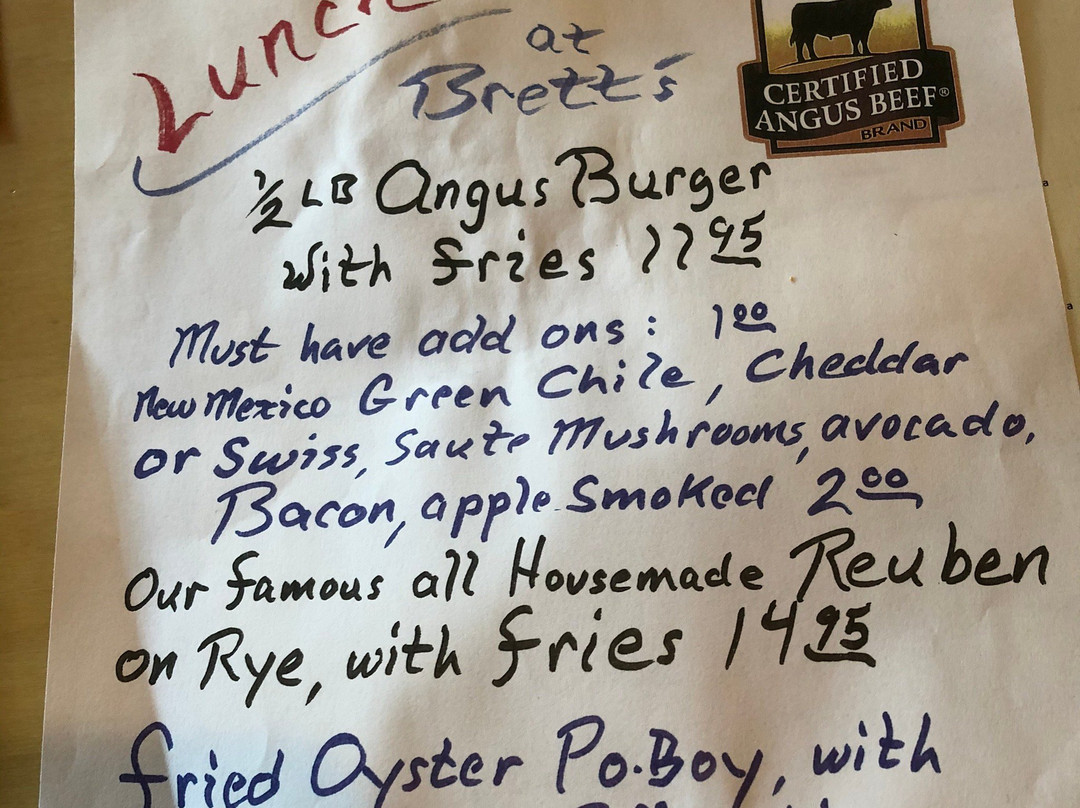 Lunch
at
Brett's
CERTIFIED
ANGUS BEEF®
BRAND
½ LB Angus Burger
with fries 11 95
Must have add ons: 1 00
New Mexico Green Chile, Cheddar
or Swiss, Saute Mushrooms, avocado,
Bacon, apple smoked 2 00
Our famous all Housemade Reuben
on Rye, with fries 14 95
fried Oyster Po.Boy, with